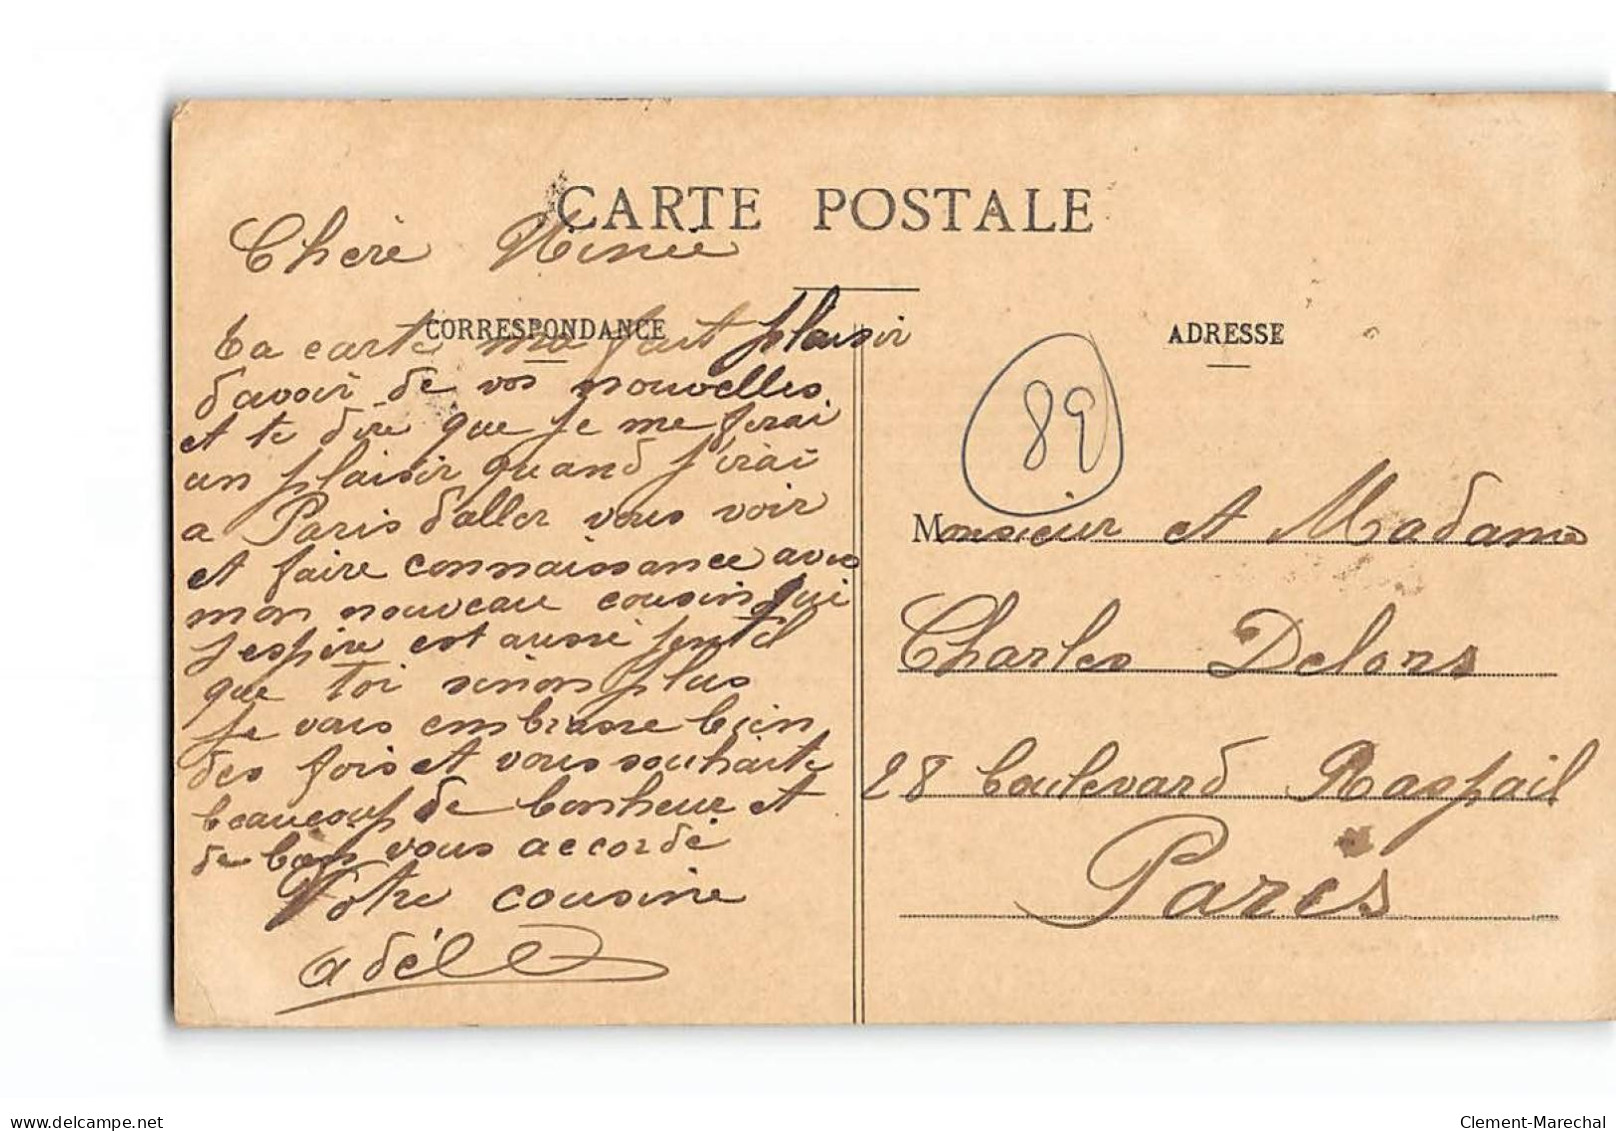 CARTE POSTALE
Chère Ninie
CORRESPONDANCE
Ta carte ma fait plaisir
d'avoir de vos nouvelles
et te dire que je me ferai
un plaisir quand j'irai
a Paris d'aller vous voir
et faire connaissance avec
mon nouveau cousin qui
j'espère est aussi jentil
que toi sinon plus
je vous embrasse bien
des fois et vous souhaite
beaucoup de bonheur et
de vous accorde
Votre cousine
adèle
ADRESSE
89
Monsieur et Madame
Charles Delons
28 boulevard Raspail
Paris
delcampe.net
Clement-Marechal